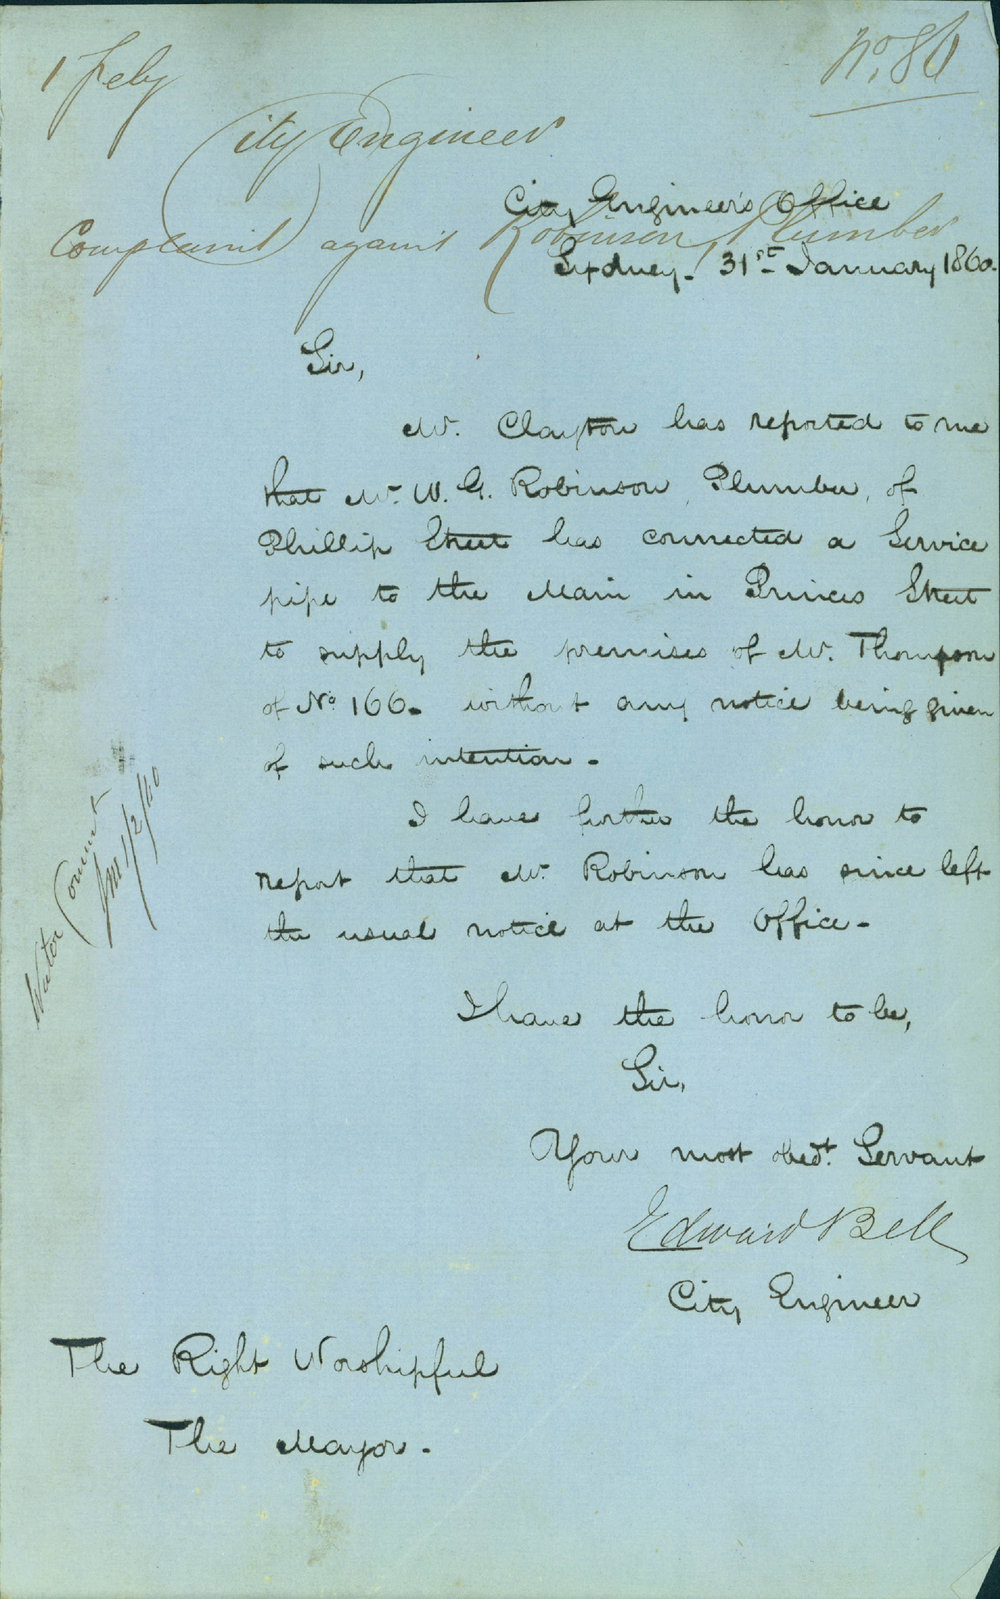 1 Feby
No. 86
City Engineer
Complaint against Robinson Plumber
City Engineer's Office
Sydney - 31st January 1860.
Sir,
Mr. Clayton has reported to me
that Mr. W. G. Robinson, Plumber, of
Phillip Street has connected a Service
pipe to the Main in Princes Street
to supply the premises of Mr. Thompson
of No. 166 - without any notice being given
of such intention -
I have further the honor to
report that Mr. Robinson has since left
the usual notice at the Office -
I have the honor to be,
Sir,
Your most obedt. Servant
Edward Bell
City Engineer
The Right Worshipful
The Mayor -
Water Commt
1/2/60